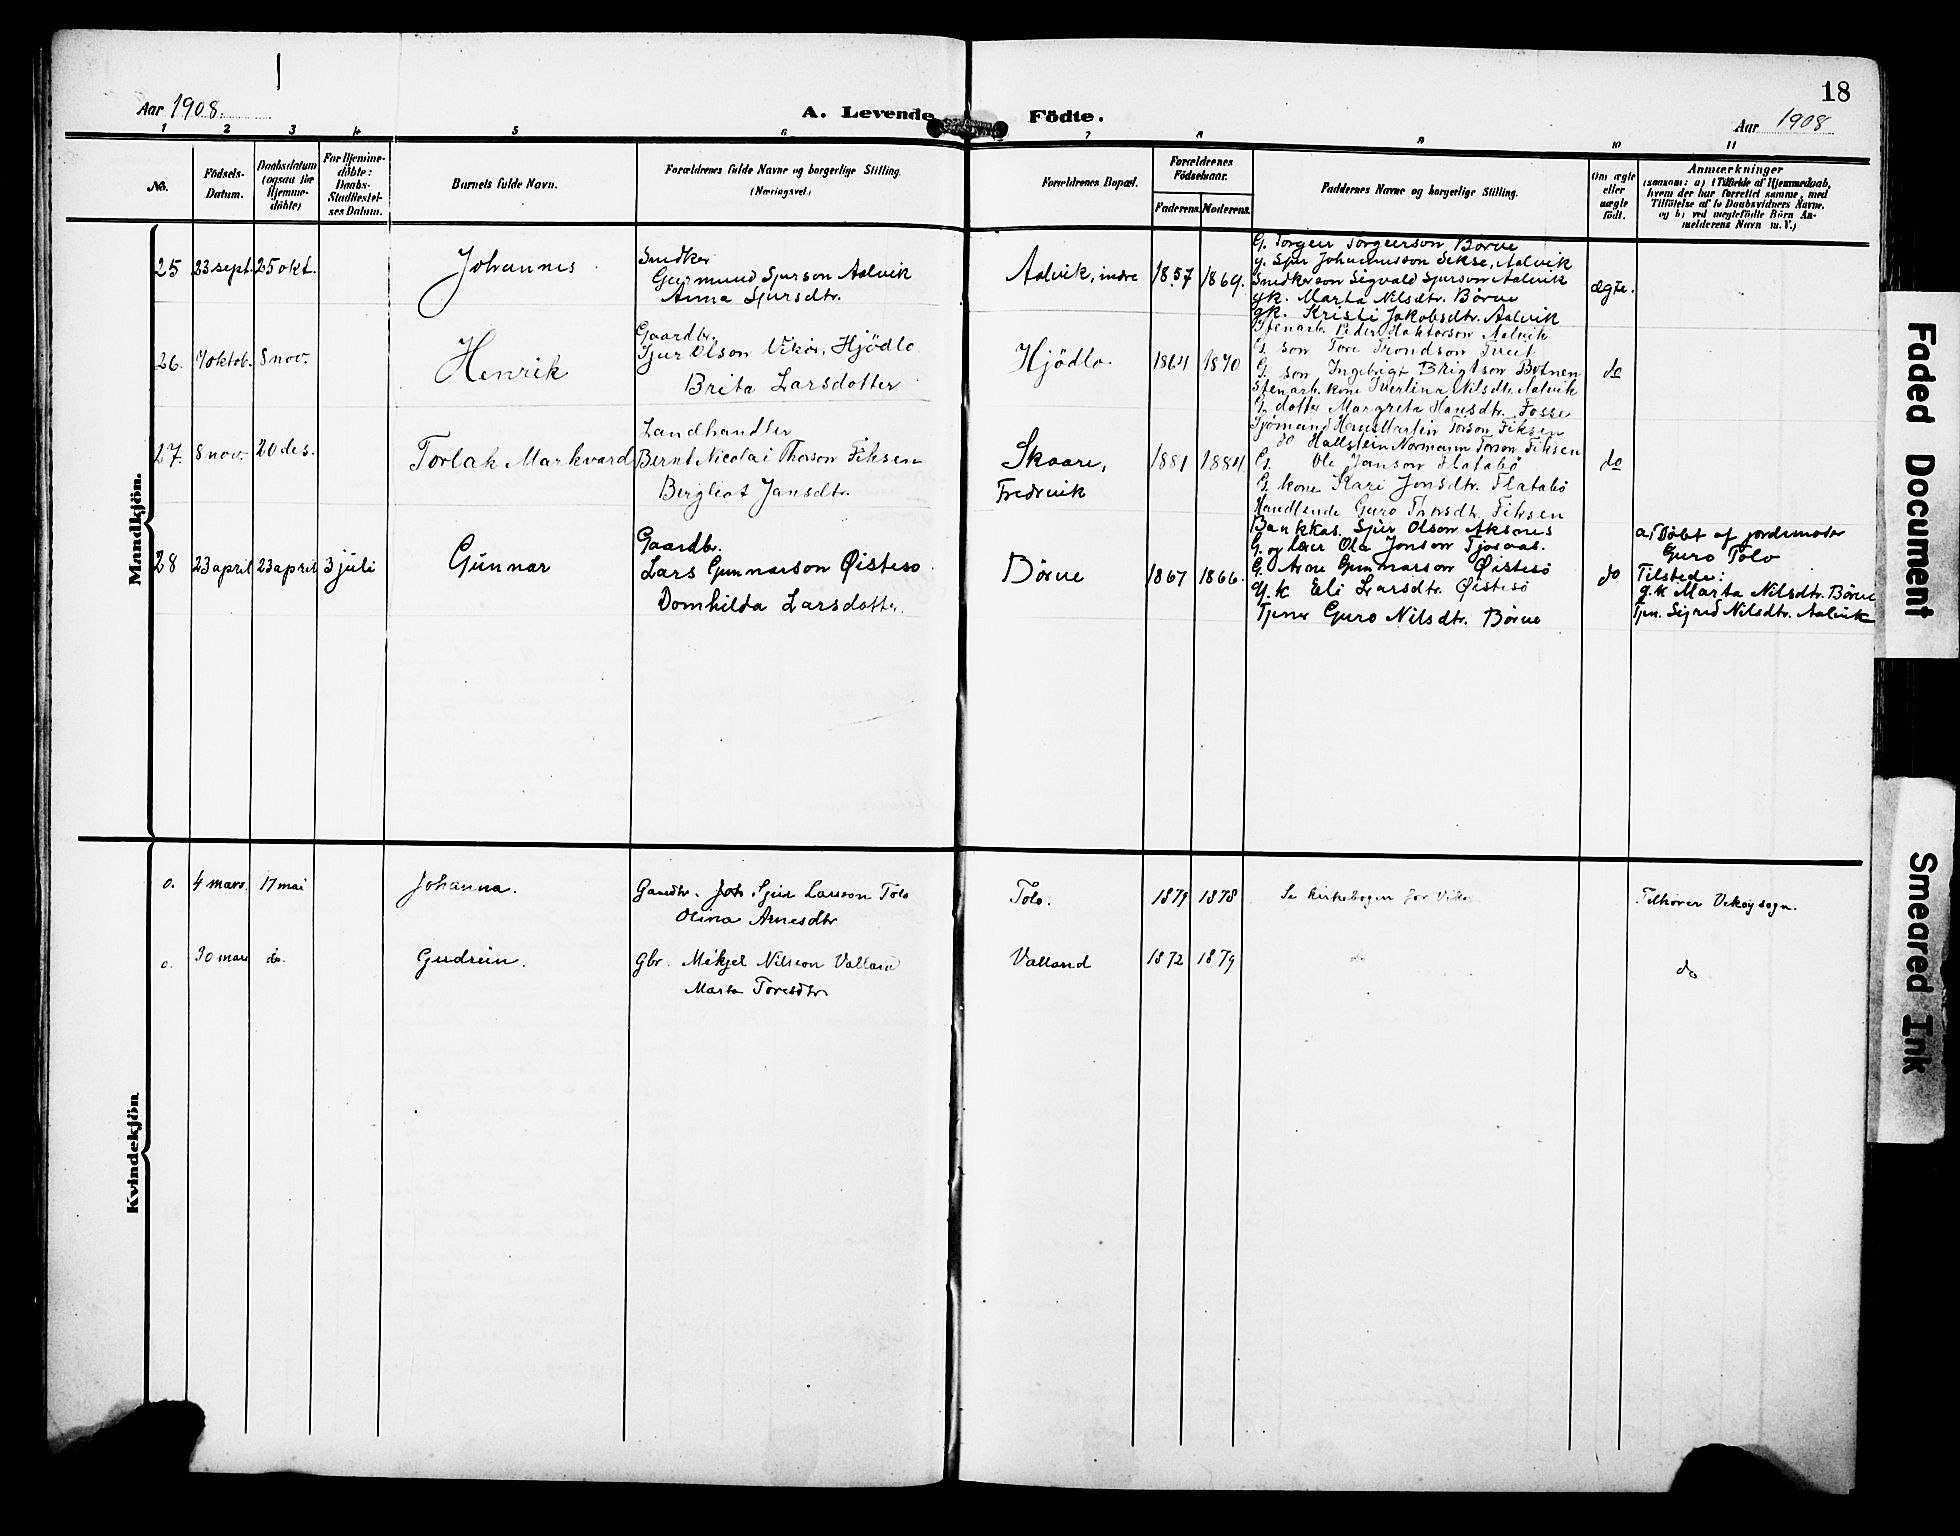 18
Aar 1908.
A. Levende Födte.
Aar 1908
1 2 3 4 5 6 7 8 9 10 11
No.
Födsels-
Datum.
Daabsdatum
(ogsaa for
Hjemme-
döbte)
For Hjemme-
döbte:
Daabs-
Stadfæstel-
ses Datum.
Barnets fulde Navn.
Forældrenes fulde Navne og borgerlige Stilling.
(Næringsvei.)
Forældrenes Bopæl.
Forældrenes
Födselsaar.
Faderens. Moderens.
Faddernes Navne og borgerlige Stilling.
Om ægte
eller
uægte
födt.
Anmærkninger
(saasom: a) i Tilfælde af Hjemmedaab,
hvem der har forrettet samme, med
Tilföielse af to Daabsvidners Navne.
og b) ved uægtefödte Börn An-
melderens Navn m. V.)
Mandkjön.
25 23 sept. 25 okt.
Johannes
Snedker
Geirmund Sjurson Aalvik
Anna Sjursdtr.
Aalvik, indre
1857 1869.
G. Torgeir Torgeirson Børve
g. Sjur Johannesson Sekse, Aalvik
Snedkerson Sigvald Sjurson Aalvik
gk. Marta Nilsdtr. Børve
gk. Kristi Jakobsdtr. Aalvik
ægte.
26. 7 oktob. 8 nov.
Henrik
Gaardbr.
Sjur Olson Vikør, Hjödlo
Brita Larsdotter
Hjödlo
1864 1870
Stenarb. Peder Haktorson Aalvik
G. son Tore Trondson Tveit
G. son Ingebrigt Brigtson Botnen
Stenarb. kone Iverlina Nilsdtr. Aalvik
G. dotter Margreta Hansdtr. Fosse
do
27. 8 nov. 20 des.
Torlak Markvard
Landhandler
Bernt Nicolai Thorson Fiksen
Bergliot Jansdtr.
Skaare,
Fredrevik
1881 1884
Sjömand Hans Martin Torson Fiksen
do Hallstein Normann Torson Fiksen
G. Ole Janson Flatabö
G. kone Kari Jonsdtr. Flatabö
Handlende Guro Thorsdtr. Fiksen
do
28 23 april 23 april 3 juli
Gunnar
Gaardbr.
Lars Gunnarson Øisteso
Domhilda Larsdotter.
Børve
1867 1866.
Bankkas. Sjur Olson Aksnes
G. og lærer Ola Jonson Tjosaas.
G. Arne Gunnarson Øistesö
G. k Eli Larsdtr. Øistesö
Tjener Guro Nilsdtr. Børve
do
a) Döbt af jordemoder
Guro Tolo
Tilstede:
g.k Marta Nilsdtr. Børve
Tjen. Sigred Nilsdtr. Aalvik
Kvindekjön
0. 4 mars 17 mai
Johanna.
Gaardbr. Sjur Larsson Tolo
Olina Arnesdtr
Tolo.
1879 1878
Se kirkebogen for Vikøy
Tilhører Vikøy sogn.
0. 30 mars do.
Gudrun.
Gbr. Mikjel Nilsson Valland
Marta Toresdtr
Valland
1872 1879
do
do
Faded Document
Smeared Ink